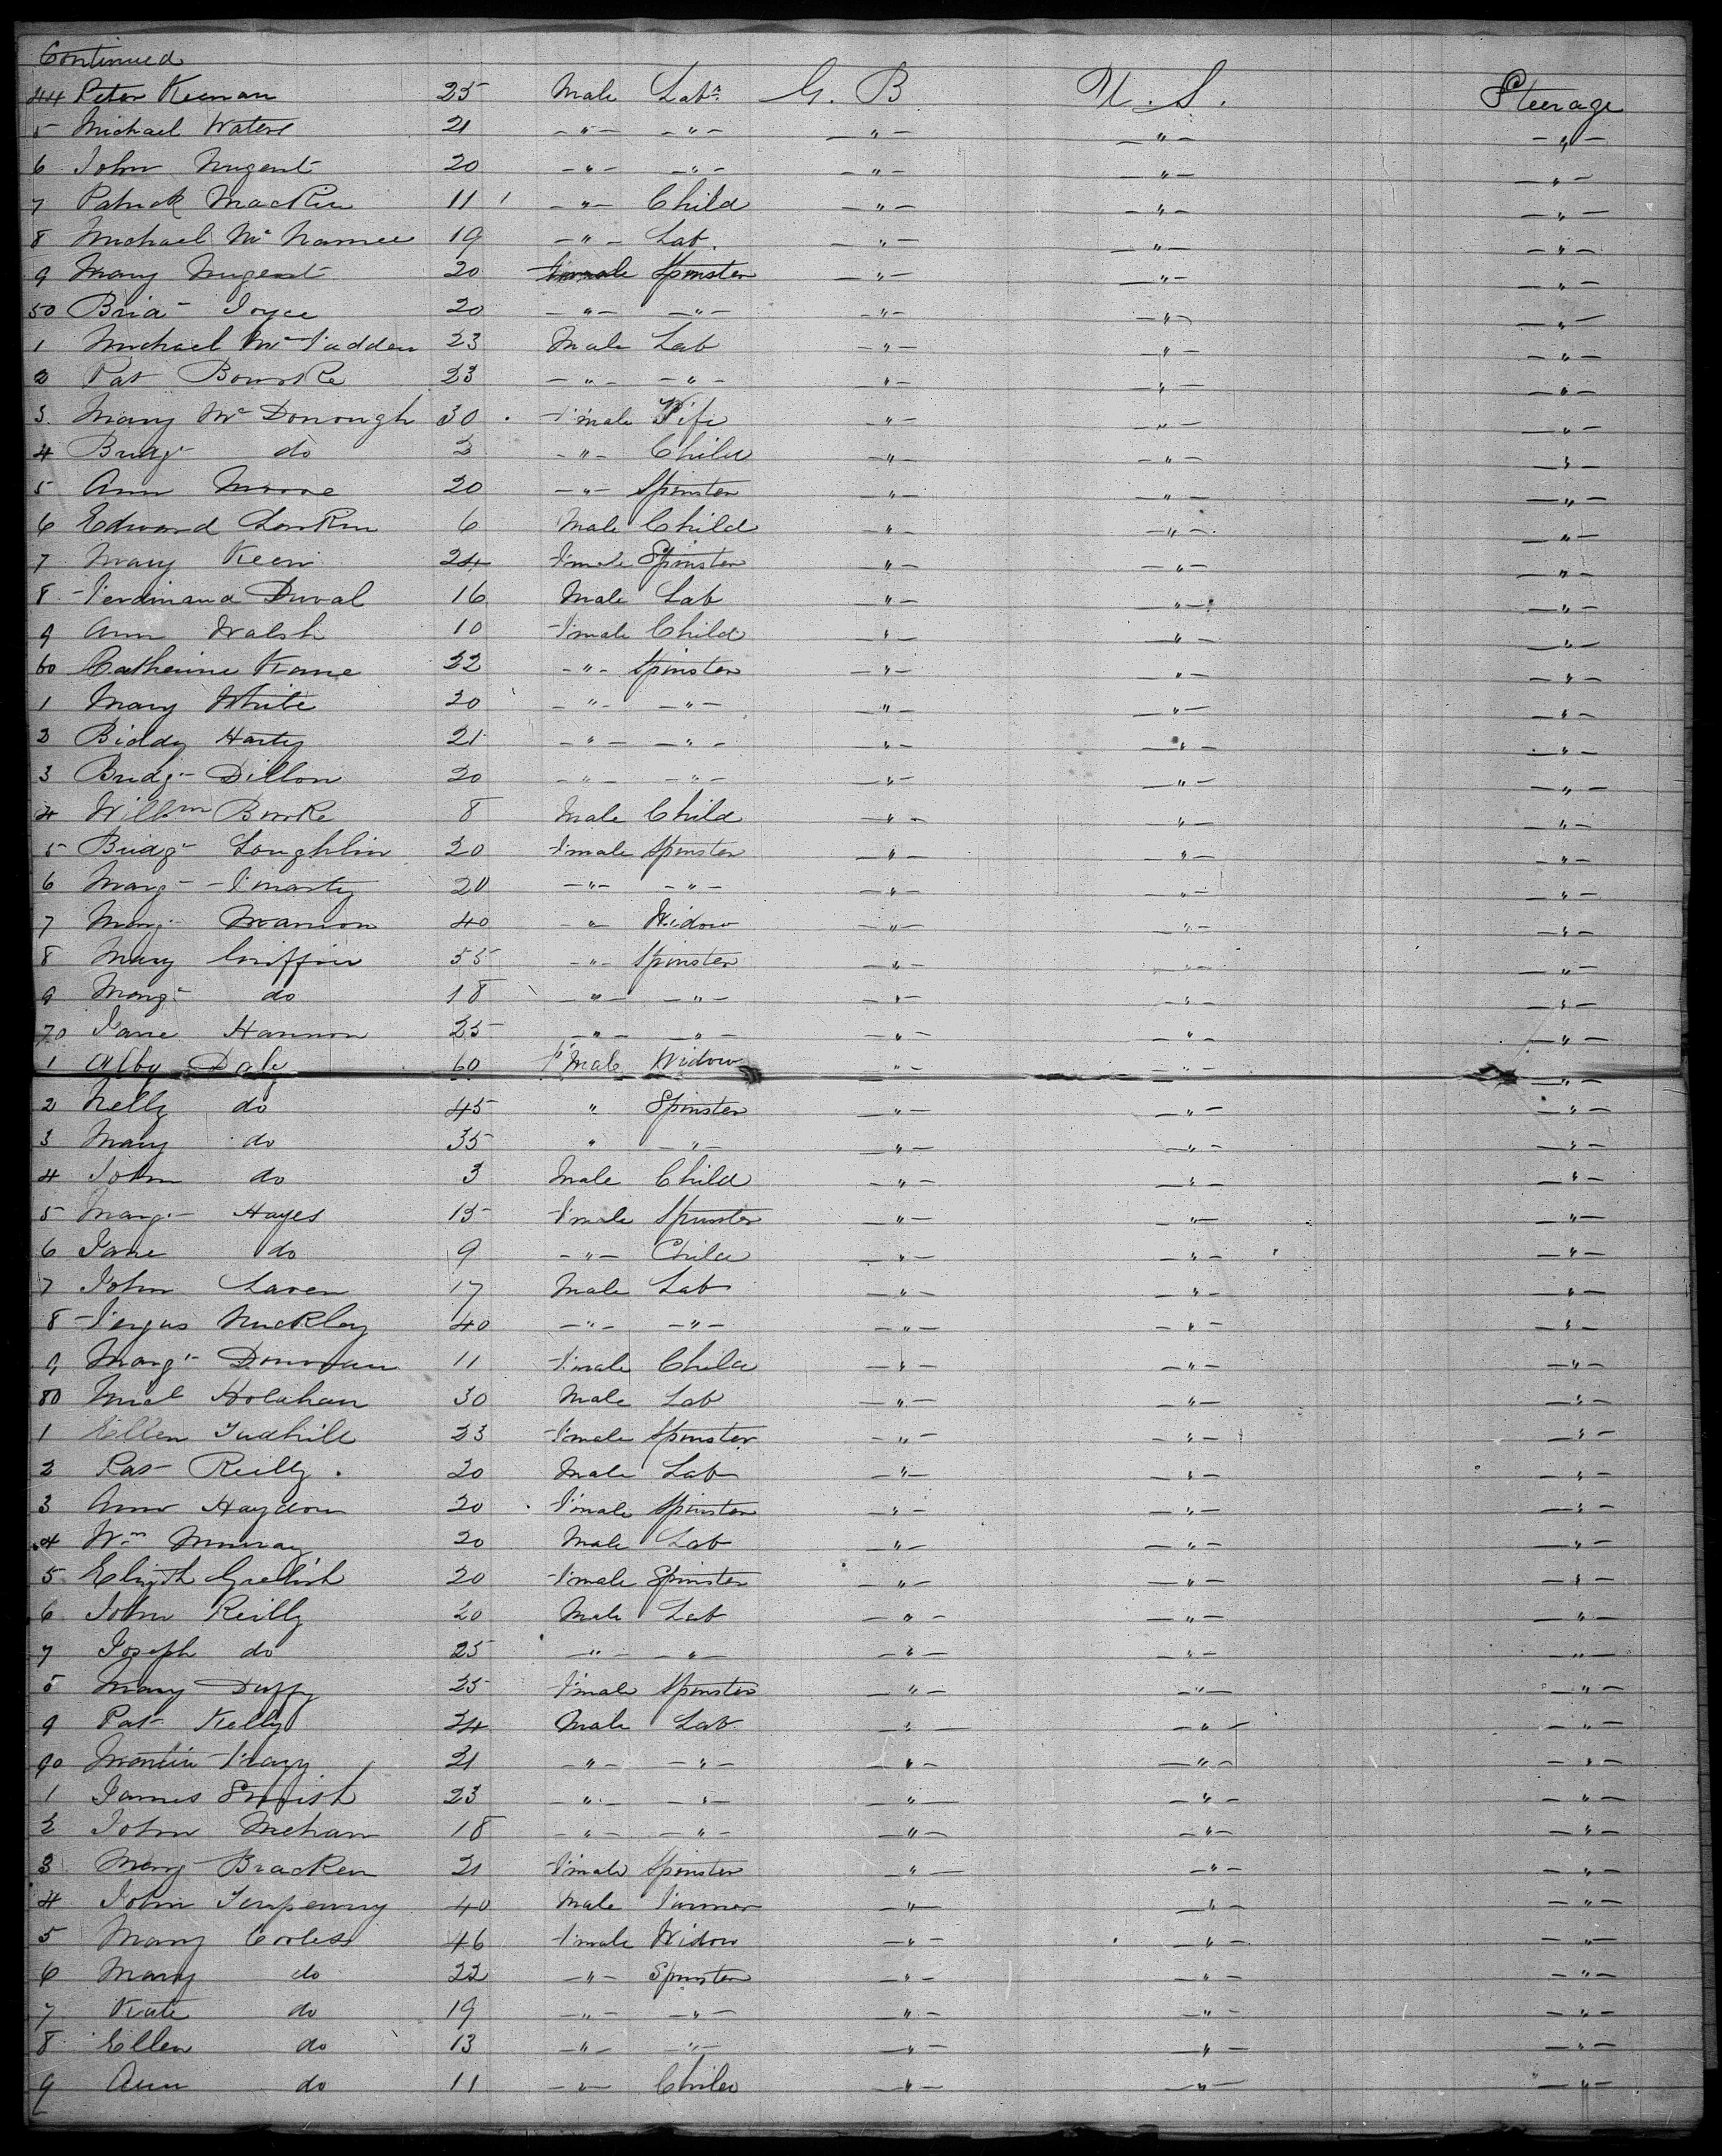 Continued
44 Peter Keenan 25 Male Labr. G. B U. S. Steerage
5 Michael Waters 21 -"- -"- -"- -"- -"-
6 John Nugent 20 -"- -"- -"- -"- -"-
7 Patrick Mackin 11 -"- Child -"- -"- -"-
8 Michael Mc Namee 19 -"- Lab. -"- -"- -"-
9 Mary Nugent 20 Female Spinster -"- -"- -"-
50 Brid- Joyce 20 -"- -"- -"- -"- -"-
1 Michael Mc Fadden 23 Male Lab -"- -"- -"-
2 Pat Bourke 23 -"- -"- -"- -"- -"-
3 Mary Mc Donough 30 Female Wife -"- -"- -"-
4 Bridg- do 2 -"- Child -"- -"- -"-
5 Ann Moore 20 -"- Spinster -"- -"- -"-
6 Edward Larkin 6 Male Child -"- -"- -"-
7 Mary Keen 24 Female Spinster -"- -"- -"-
8 Ferdinand Duval 16 Male Lab -"- -"- -"-
9 Ann Walsh 10 Female Child -"- -"- -"-
60 Catherine Kane 22 -"- Spinster -"- -"- -"-
1 Mary White 20 -"- -"- -"- -"- -"-
2 Biddy Harty 21 -"- -"- -"- -"- -"-
3 Bridg- Dillon 20 -"- -"- -"- -"- -"-
4 Willm Bourke 8 Male Child -"- -"- -"-
5 Bridg- Loughlin 20 Female Spinster -"- -"- -"-
6 Marg- Finarty 20 -"- -"- -"- -"- -"-
7 Marg- Mannion 40 -"- Widow -"- -"- -"-
8 Mary Griffin 55 -"- Spinster -"- -"- -"-
9 Marg- do 18 -"- -"- -"- -"- -"-
70 Jane Hannon 25 -"- -"- -"- -"- -"-
1 Abby Daly 60 FMale Widow -"- -"- -"-
2 Nelly do 45 " Spinster -"- -"- -"-
3 Mary do 35 " -"- -"- -"- -"-
4 John do 3 Male Child -"- -"- -"-
5 Marg- Hayes 15 Female Spinster -"- -"- -"-
6 Jane do 9 -"- Child -"- -"- -"-
7 John Laven 17 Male Lab -"- -"- -"-
8 Fergus Nuckley 40 -"- -"- -"- -"- -"-
9 Marg- Donovan 11 Female Child -"- -"- -"-
80 Micl Holahan 30 Male Lab -"- -"- -"-
1 Ellen Tudhill 23 Female Spinster -"- -"- -"-
2 Pat Reilly 20 Male Lab -"- -"- -"-
3 Ann Haydon 20 Female Spinster -"- -"- -"-
4 Wm Murray 20 Male Lab -"- -"- -"-
5 Elizth Grealish 20 Female Spinster -"- -"- -"-
6 John Reilly 20 Male Lab -"- -"- -"-
7 Joseph do 25 -"- -"- -"- -"- -"-
8 Mary Duffy 25 Female Spinster -"- -"- -"-
9 Pat Kelly 24 Male Lab -"- -"- -"-
90 Martin 21 -"- -"- -"- -"- -"-
1 James 23 -"- -"- -"- -"- -"-
2 John Mehan 18 -"- -"- -"- -"- -"-
3 Mary Bracken 21 Female Spinster -"- -"- -"-
4 John Tenpenny 40 Male Farmer -"- -"- -"-
5 Mary Corless 46 Female Widow -"- -"- -"-
6 Mary do 22 -"- Spinster -"- -"- -"-
7 Kate do 19 -"- -"- -"- -"- -"-
8 Ellen do 13 -"- -"- -"- -"- -"-
9 Ann do 11 -"- Child -"- -"- -"-